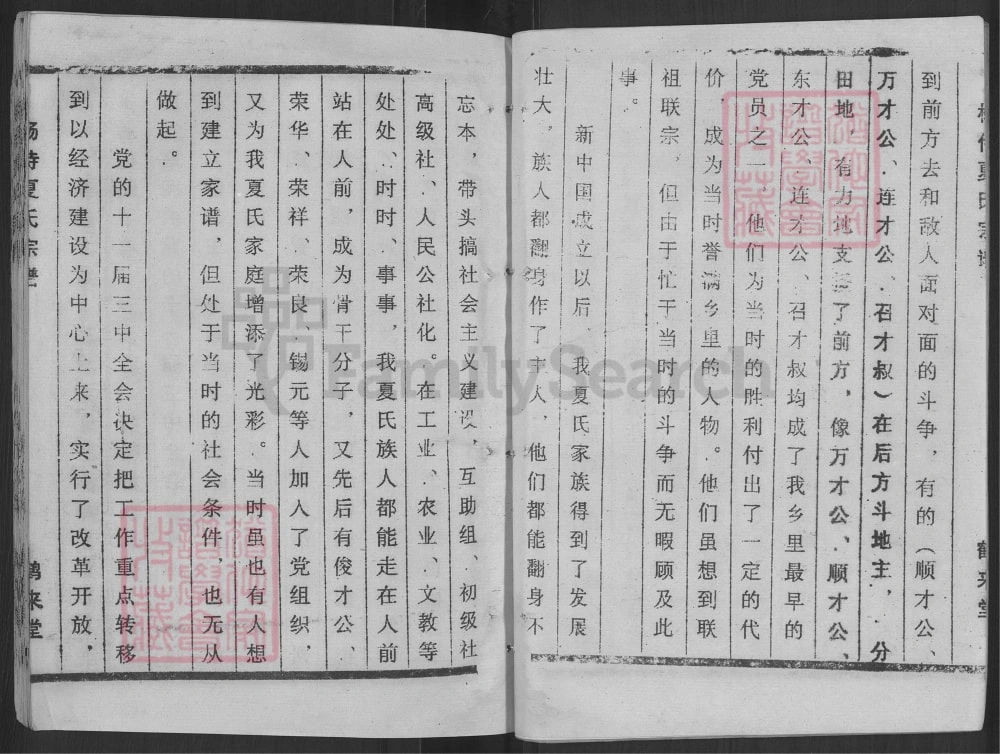 到前方去和敌人面对面的斗争，有的（顺才公、
万才公、连才公、召才叔）在后方斗地主，分
田地，有力地支援了前方，像万才公、顺才公、
东才公、连才公、召才叔均成了我乡里最早的
党员之一，他们为当时的胜利付出了一定的代
价，成为当时誉满乡里的人物。他们虽想到联
祖联宗，但由于忙于当时的斗争而无暇顾及此
事。
新中国成立以后，我夏氏家族得到了发展
壮大，族人都翻身作了主人，他们都能翻身不
鹤来堂
忘本，带头搞社会主义建设，互助组、初级社
高级社、人民公社化。在工业、农业、文教等
处处、时时、事事，我夏氏族人都能走在人前
站在人前，成为骨干分子，又先后有俊才公、
荣华、荣祥、荣良、锡元等人加入了党组织，
又为我夏氏家庭增添了光彩。当时虽也有人想
到建立家谱，但处于当时的社会条件，也无从
做起。
党的十一届三中全会决定把工作重点转移
到以经济建设为中心上来，实行了改革开放，
夏氏宗谱
鹤来堂
FamilySearch